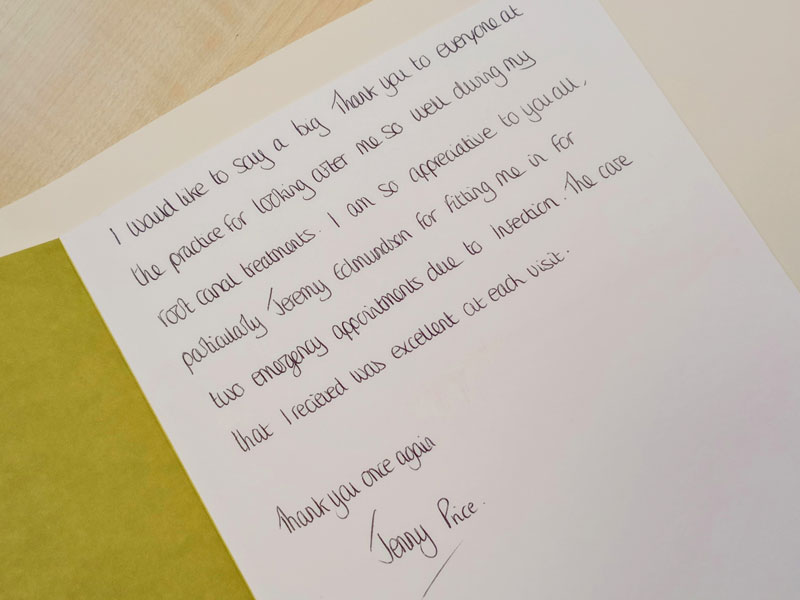 I would like to say a big Thank you to everyone at
the practice for looking after me so well during my
root canal treatments. I am so appreciative to you all,
particularly Jeremy Edmundson for fitting me in for
two emergency appointments due to Infection. The care
that I recieved was excellent at each visit.
Thank you once again
Jenny Price.